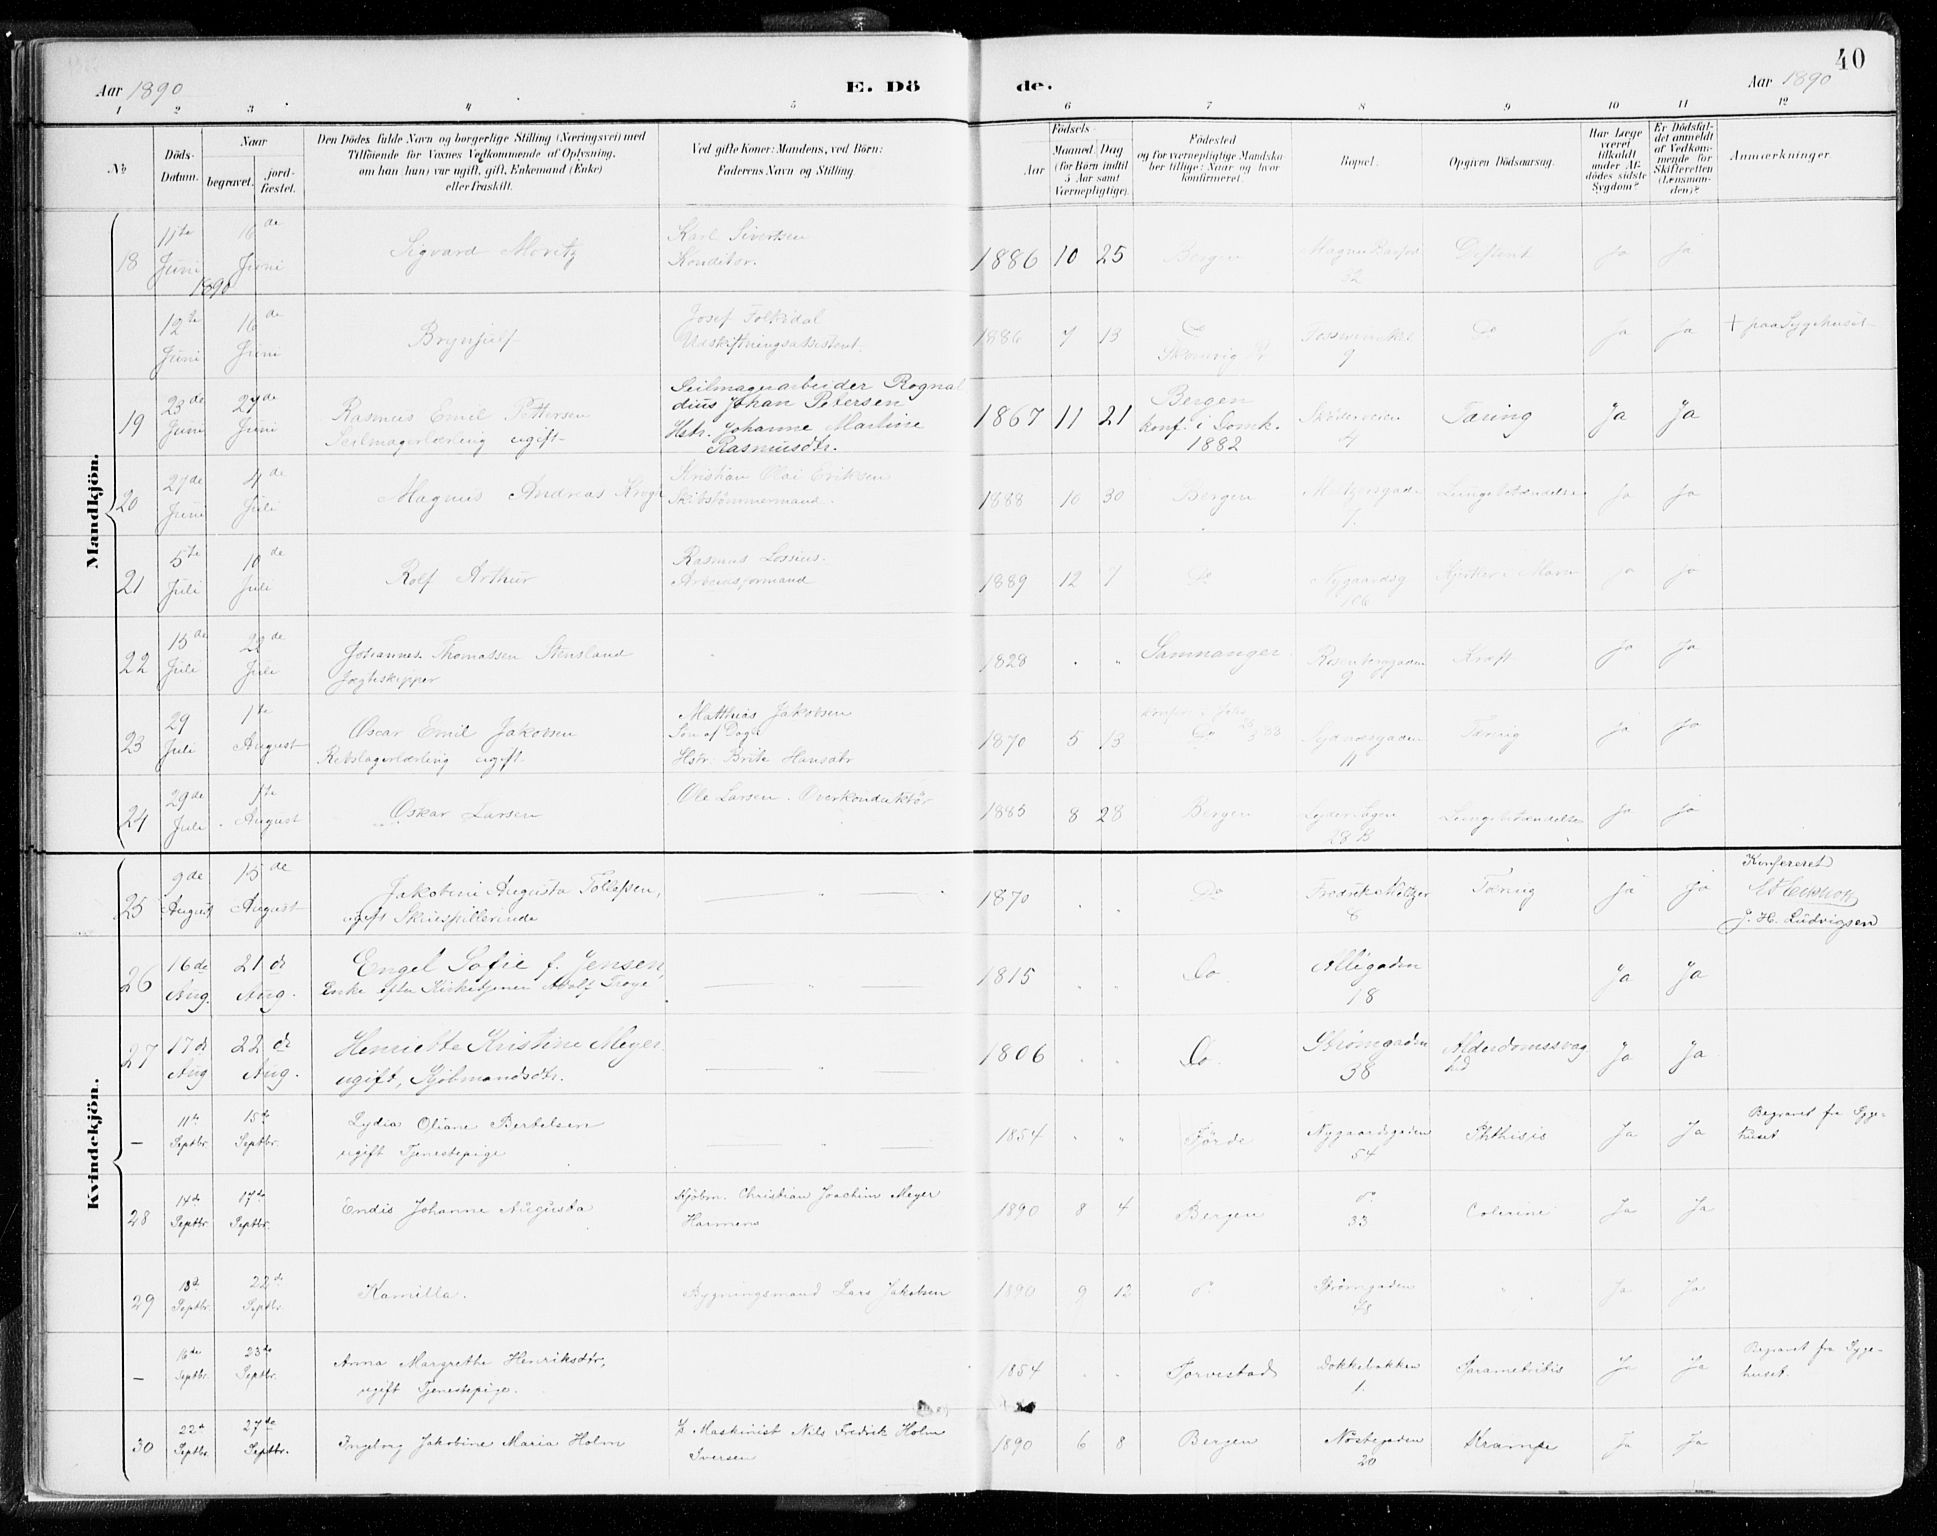 40
Aar 1890
E. Dö
de.
Aar 1890
1 2 3 4 5 6 7 8 9 10 11 12
No
Döds-Datum.
Naar
begravet.
jord-fæstet.
Den Dödes fulde Navn og borgerlige Stilling (Næringsvei) med
Tilföiende for Voxnes Vedkommende af Oplysning,
om han (hun) var ugift, gift, Enkemand (Enke)
eller fraskilt.
Ved gifte Koner: Mandens, ved Börn:
Faderens Navn og Stilling.
Födsels-
Aar
Maaned. Dag
(for Börn indtil
5 Aar samt
Værnepligtige).
Födested
og for værnepligtige Mandska-
ber tillige: Naar og hvor
konfirmeret.
Bopæl.
Opgiven Dödsaarsag.
Har Læge
været
tilkaldt
under Af-
dödes sidste
Sygdom?
Er Dödsfal-
det anmeldt
af Vedkom-
mende for
Skifteretten
(Lensman-
den)?
Anmærkninger
Mandkjön.
18 11te Juni 1890 16de Juni Sigvard Moritz Karl Sivertsen Konditor. 1886 10 25 Bergen Magnus Barfod 32 Difterit Ja Ja
12te Juni 16de Juni Brynjulf Josef Folkedal Udskiftningsassistent 1886 7 13 Do 9 Do Ja Ja + paa Sygehuset
19 23de Juni 27de Juni Rasmus Emil Pettersen Seilmagerlærling ugift Seilmagerarbeider Rognal
dius Johan Petersen
Hstr. Johanne Martine
Rasmusdtr. 1867 11 21 Bergen Konf. i Domk. 1882 Skivebveien 4 Tæring Ja Ja
20 27de Juni 4de Juli Magnus Andreas Krogh Kristian Olai Eriksen Skibstømmermand. 1888 10 30 Bergen Meltzersgade 7. Lungebetændelse Ja Ja
21 5te Juli 10de Juli Rolf Arthur Rasmus Lossius. Arbeidsformand 1889 12 7 Do Nygaardsg 106 Ja Ja
22 15de Juli 22de Juli Johannes Thomassen Stensland Jægteskipper 1828 . " Samnanger Rosenbergsgaden 9 Kræft Ja Ja
23 29 Juli 1te August Oscar Emil Jakobsen Rebslagerlærling ugift Matthias Jakobsen
Søn af
Hstr. Brite Hansdtr 1870 5 13 Do Sydnæsgaden 11 Tæring Ja Ja
24 29de Juli 1te August Oskar Larsen Ole Larsen. Overkonduktør 1885 8 28 Bergen Lyder Sagen 28 B Lungebetændelse Ja Ja
Kvindekjön.
25 9de August 15de August Jakobine Augusta Tollefsen, ugift Skuespillerinde " 1870 Do Fredrik Meltzer 8 Tæring Ja Ja Konfereret
J. H. Ludvigsen
26 16de Aug. 21de Aug. Engel Sofie f. Jensen, Enke efter Kirketjener Adolf Troye " 1815 Do. Allégaden 18 Ja Ja
27 17de Aug 22de Aug. Henriette Kristine Meyer. ugift, Kjøbmandsdtr. " 1806 Do. Strømgaden 38 Alderdomssvag
hed Ja Ja
– 11te Septbr. 15de Septbr. Lydia Oliane Bertelsen ugift Tjenestepige " 1854 " " Førde Nygaardsgaden 54 Phthisis Ja Ja Begravet fra Syge-
huset
28 14de Septbr. 17de Septbr. Endis Johanne Augusta Kjøbm. Christian Joachim Meyer
Harmens 1890 8 4 Bergen do 33 Colerine Ja Ja
29 18d Septbr. 22de Septbr. Kamilla. Bygningsmand Lars Jakobsen 1890 9 12 do Strømgaden 78 " Ja Ja
– 16de Septbr. 23de Septbr. Anna Margrethe Henriksdtr, ugift Tjenestepige. 1854 Torvestad Dokkebakken 1. Parametritis Ja Ja Begravet fra Syge-
huset.
30 22de Septbr. 27de Septbr. Ingeborg Jakobine Maria Holm Maskinist Nils Fredrik Holm
Iversen 1890 6 8 Bergen Nøstegaden 20 Krampe Ja Ja